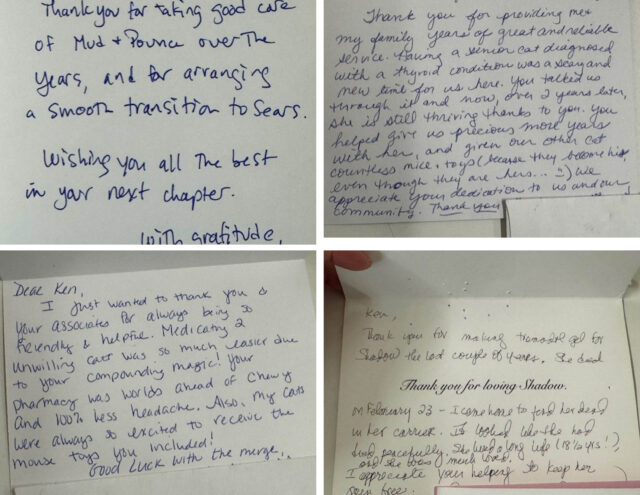 Thank you for taking good care
of Mud + Pounce over The
years, and for arranging
a smooth transition to Sears.
Wishing you all The best
in your next chapter.
With gratitude,
Thank you for providing me +
my family years of great and reliable
service. Having a senior cat diagnosed
with a thyroid condition was a scary and
new time for us here. You talked us
through it and now, over 2 years later,
she is still thriving thanks to you. You
helped give us precious more years
with her, and given our other cat
countless mice toys (because they become his,
even though they are hers... :)) We
appreciate your dedication to us and our
community. Thank you
Dear Ken,
I just wanted to thank you &
your associates for always being so
friendly & helpful. Medicating 2
unwilling cats was so much easier due
to your compounding magic! Your
pharmacy was worlds ahead of Chewy
and 100% less headache. Also, my cats
were always so excited to receive the
mouse toys you included!
Good luck with the merge...
Ken,
Thank you for making tramadol gel for
Shadow the last couple of years. She died
Thank you for loving Shadow.
on February 23 - I came home to find her dead
in her carrier. It looked like she had
died peacefully. She lived a long life (18½ yrs!)
and she was much loved.
I appreciate your helping to keep her
pain free.